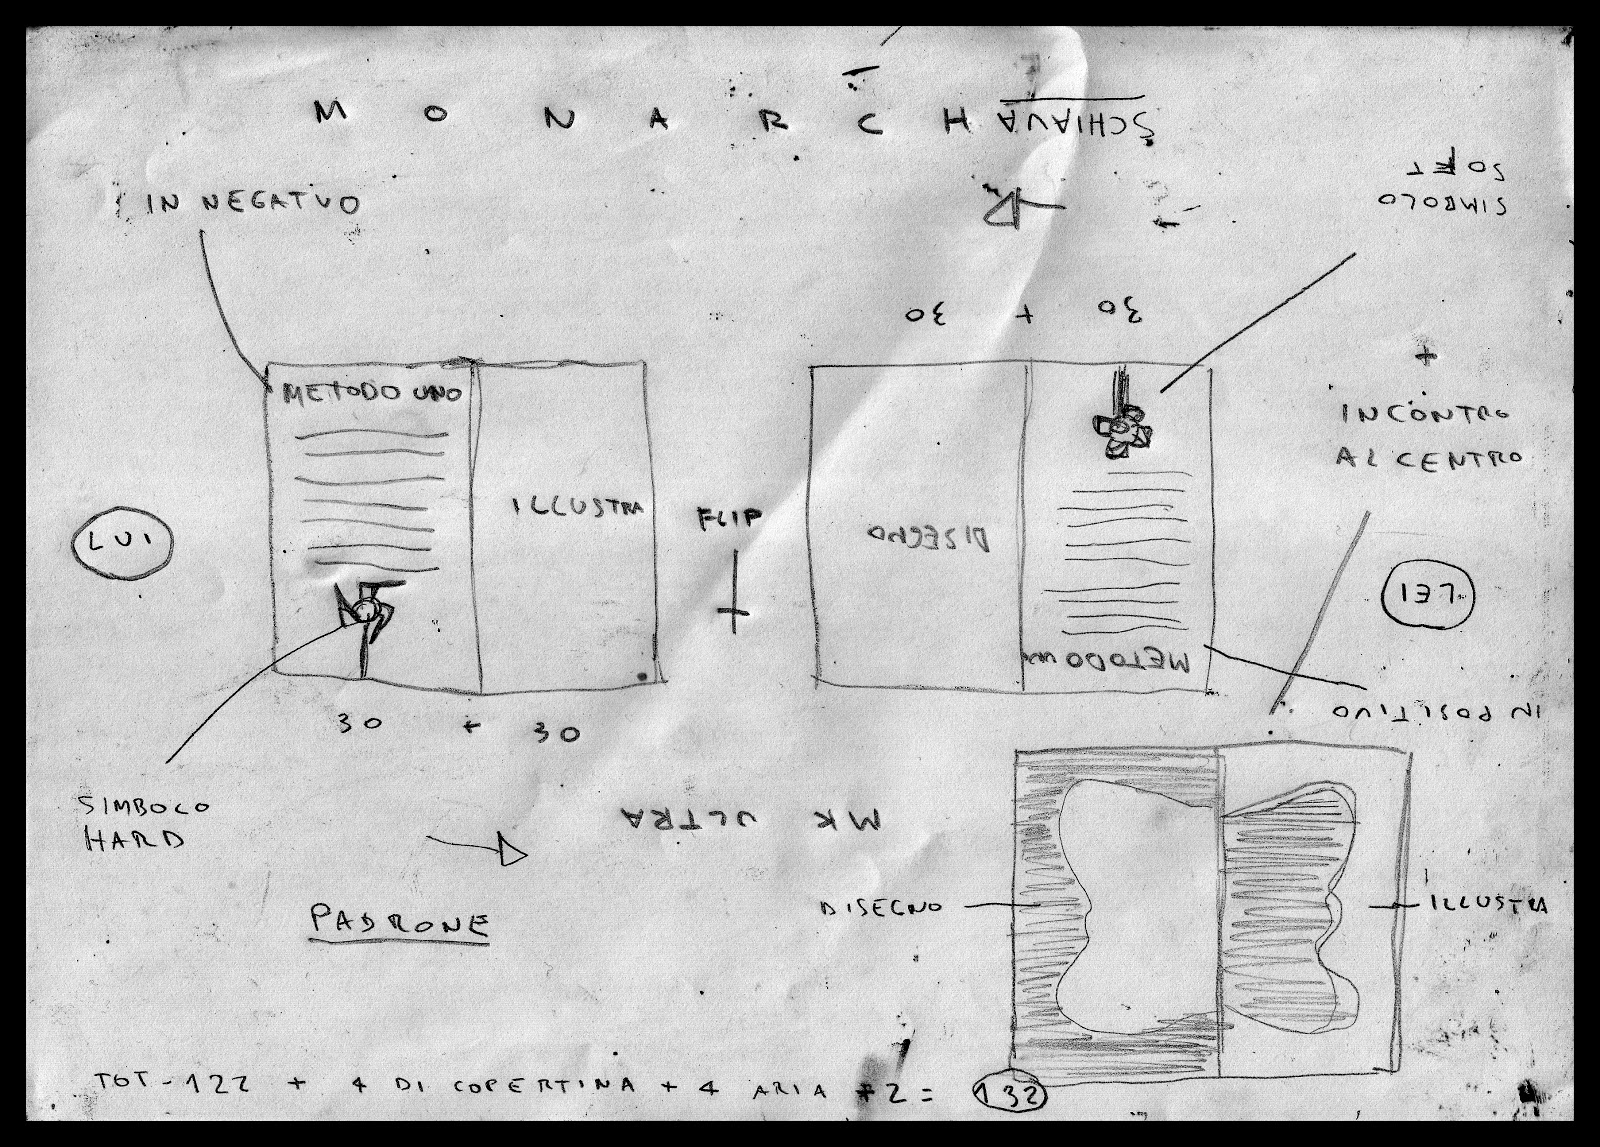 MONARCH
SCHIAVA
IN NEGATIVO
SIMBOLO
SOFT
30 + 30
METODO UNO
ILLUSTRA
FLIP
DISEGNO
METODO UNO
+
INCONTRO
AL CENTRO
LUI
LEI
IN POSITIVO
30 + 30
SIMBOLO
HARD
MK ULTRA
PADRONE
DISEGNO
ILLUSTRA
TOT - 122 + 4 DI COPERTINA + 4 ARIA + 2 = 132